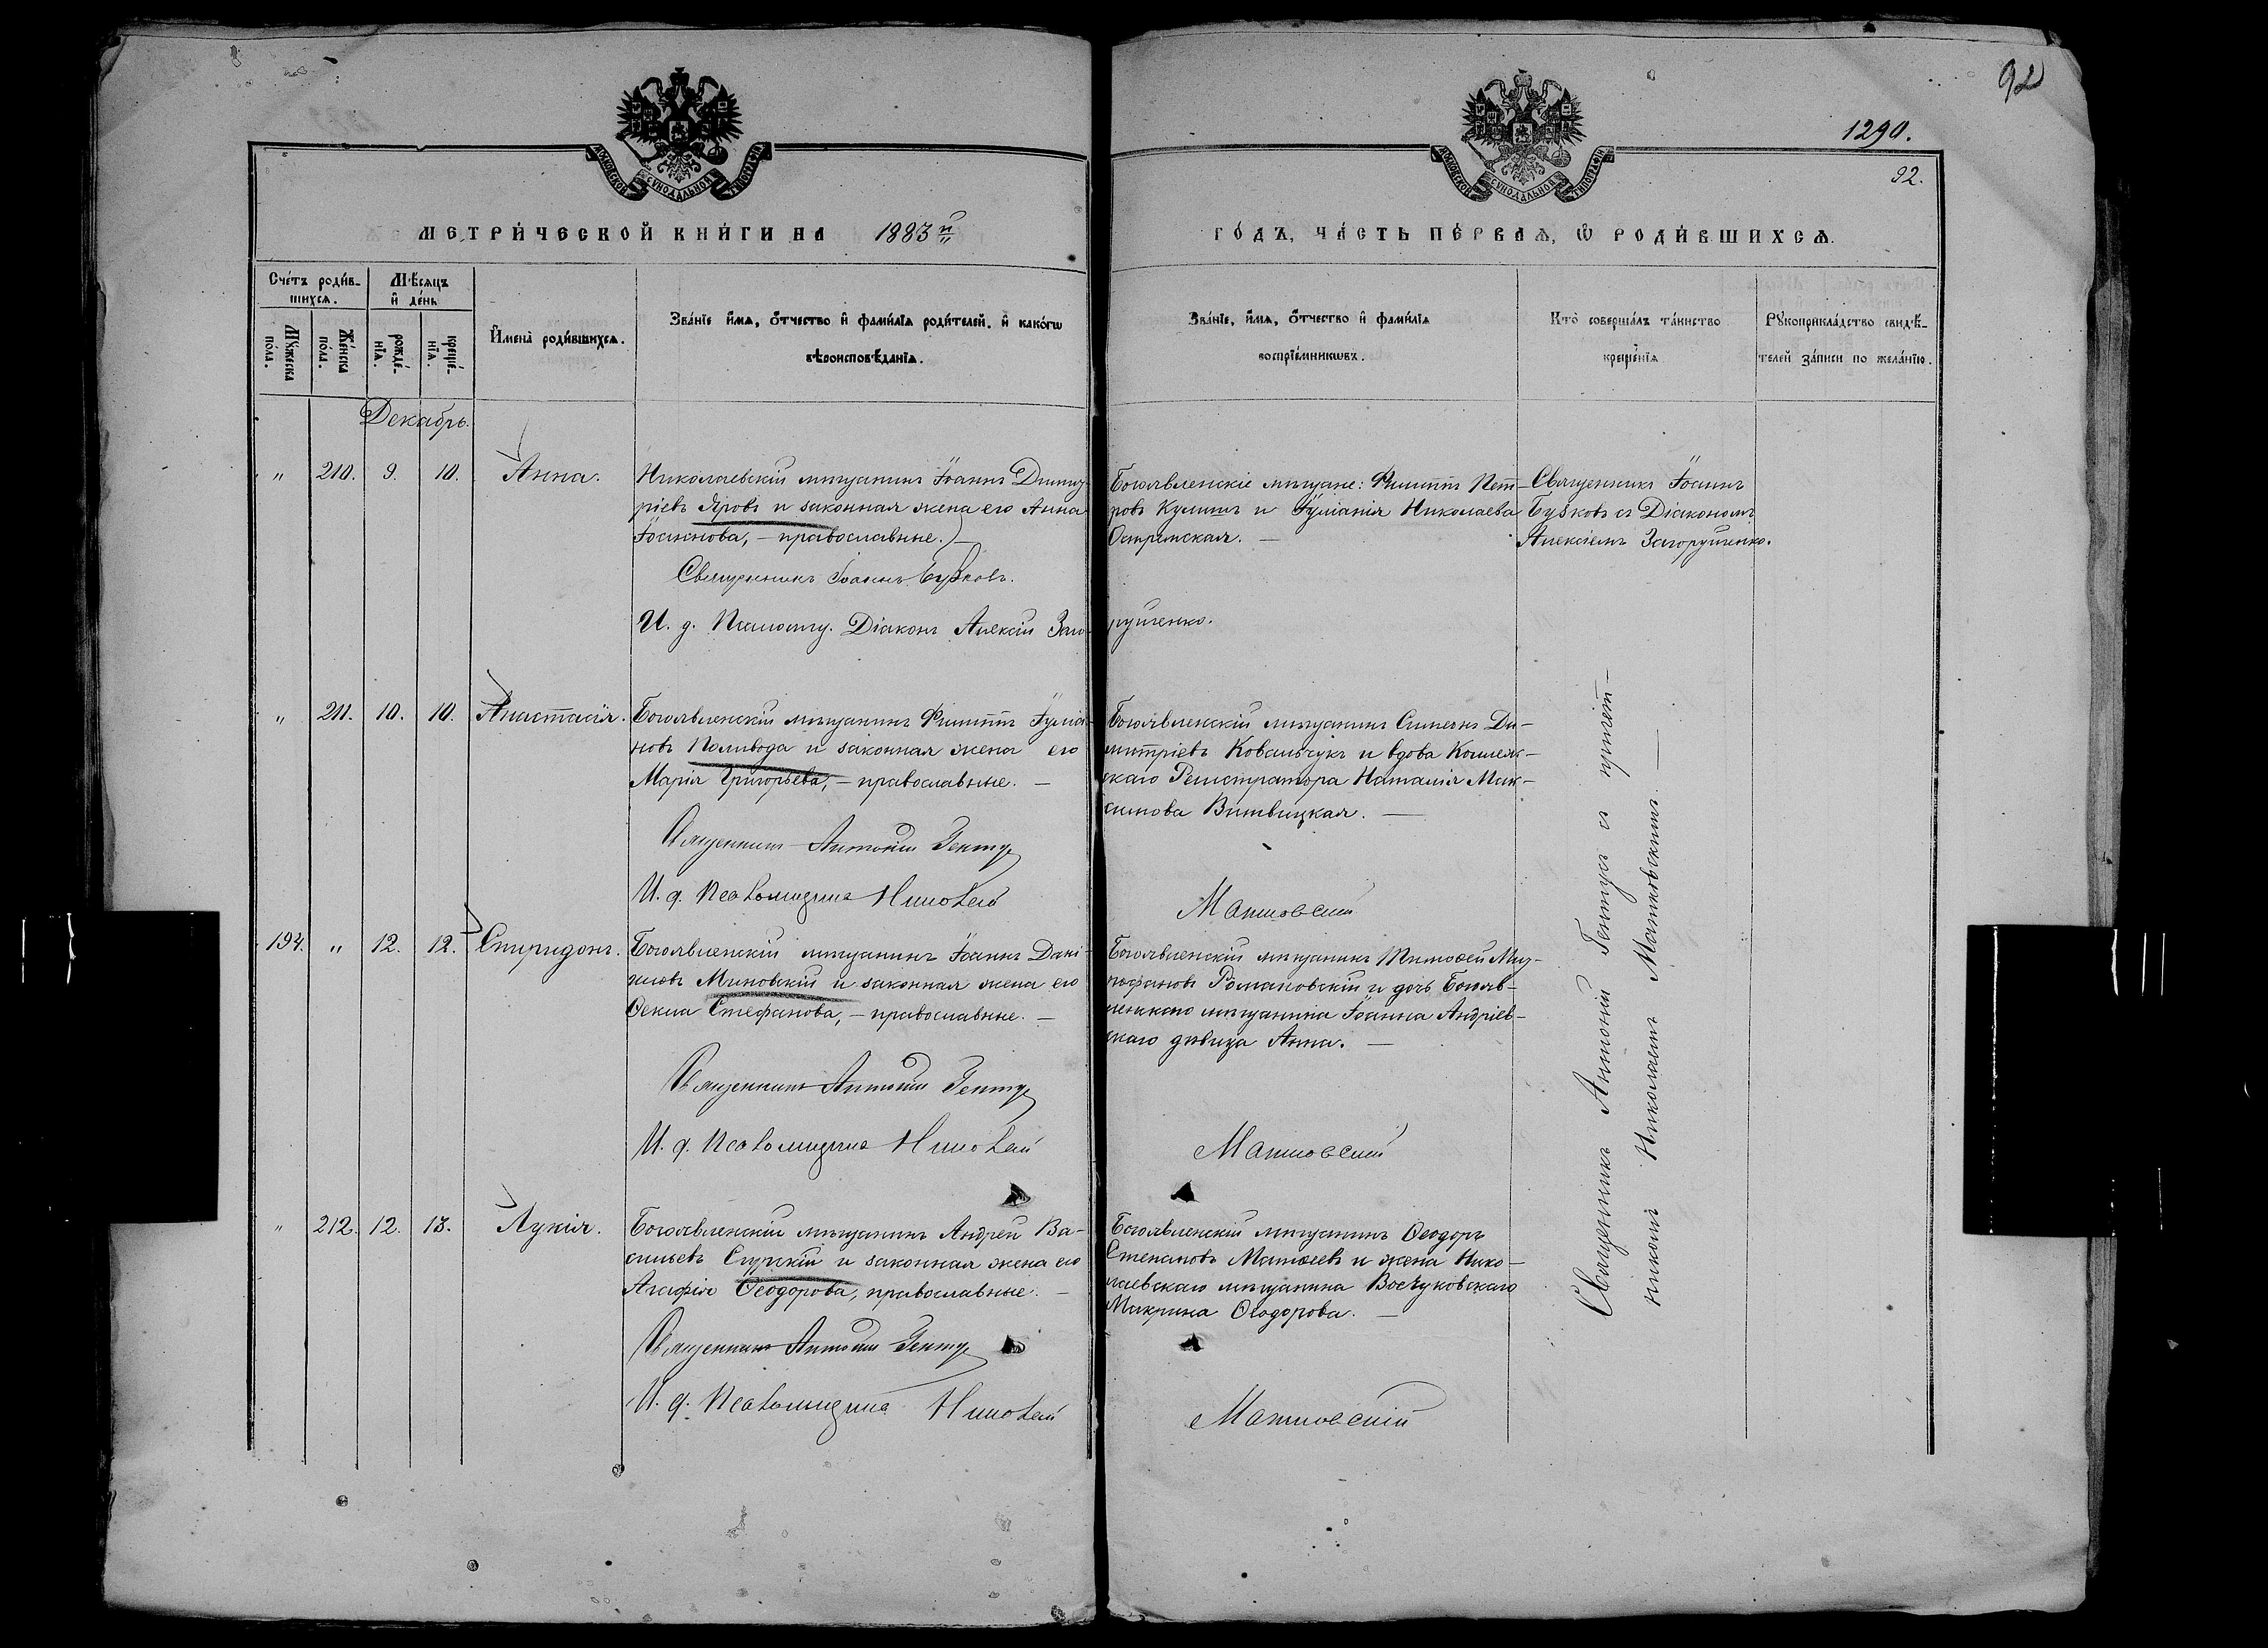 92
1290.
92.
МОСКОВСКОЙ СѴНОДАЛЬНОЙ ТИПОГРАФІИ
МОСКОВСКОЙ СѴНОДАЛЬНОЙ ТИПОГРАФІИ
МЕТРИ́ЧЕСКОЙ КНИ́ГИ НА 1883й
ГО́ДЪ, ЧА́СТЬ ПЕ́РВАѦ, Ѡ҆ РОДИ́ВШИХСѦ.
Сче́тъ роди́в-
шихсѧ.
Мѣ́сѧцъ
и҆ де́нь
Мꙋ́жеска
по́ла.
Же́нска
по́ла.
рожде́-
нїѧ.
креще́-
нїѧ.
И҆мена̀ роди́вшихсѧ.
Зва́нїе и҆́мѧ, ѻ҆́тчество и҆ фами́лїѧ роди́телей, и҆ како́гѡ
вѣроисповѣ́данїѧ.
Зва́нїе, и҆́мѧ, ѻ҆́тчество и҆ фами́лїѧ
воспрїе́мникѡвъ.
Кто̀ соверша́лъ та́инство
креще́нїѧ
Рꙋкоприкла́дство свидѣ́-
телей за́писи по жела́нїю.
Декабрь.
" 210. 9. 10. Анна.
Николаевскій мѣщанинъ Іоаннъ Димит-
ріевъ Яровъ и законная жена его Анна
Іоаннова, – православные. –
Священникъ Іоаннъ Бужковъ.
И. д. Псаломщ. Діаконъ Алексій Заго-
Богоявленскіе мѣщане: Филиппъ Пет-
ровъ Кулишъ и Іуліанія Николаева
Остремская. –
рущенко.
Священникъ Іоаннъ
Бужковъ съ Діакономъ
Алексіемъ Загорущенко.
" 211. 10. 10. Анастасія.
Богоявленскій мѣщанинъ Филиппъ Іуліа-
новъ Поливода и законная жена его
Марія Григорьева, – православные. –
Священникъ Антоній Гентуъ
И. д. Псаломщика Николай
Богоявленскій мѣщанинъ Симеонъ Ди-
митріевъ Ковальчукъ и вдова Коллеж-
скаго Регистратора Наталія Мак-
симова Витвицкая. –
Матковскій
194. " 12. 12. Спиридонъ.
Богоявленскій мѣщанинъ Іоаннъ Дані-
иловъ Миновскій и законная жена его
Ѳекла Стефанова, – православные. –
Священникъ Антоній Гентуъ
И. д. Псаломщика Николай
Богоявленскій мѣщанинъ Тимоѳей Мит-
рофановъ Романовскій и дочь Богояв-
ленскаго мѣщанина Іоанна Андріев-
скаго дѣвица Анна. –
Матковскій
" 212. 12. 13. Лукія.
Богоявленскій мѣщанинъ Андрей Ва-
сильевъ Слуцкій и законная жена его
Агафія Ѳеодорова, православные. –
Священникъ Антоній Гентуъ
И. д. Псаломщика Николай
Богоявленскій мѣщанинъ Ѳеодоръ
Степановъ Матвѣевъ и жена Нико-
лаевскаго мѣщанина
Макрина Ѳеодорова. –
Матковскій
Священникъ Антоній Гентуъ съ причет-
никомъ Николаемъ Матковскимъ. –